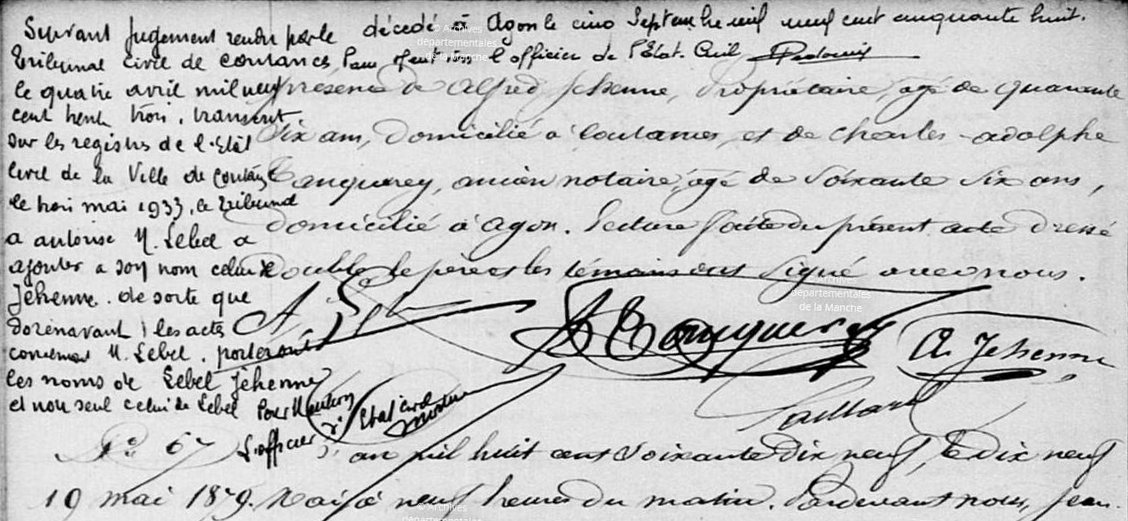 décédé à Agon le cinq Septembre mil neuf cent cinquante huit.
Pour mention l'officier de l'Etat-Civil
Suivant jugement rendu par le
Tribunal civil de Coutances
le quatre avril mil neuf
cent trente trois, transcrit
sur les registres de l'Etat
civil de la Ville de Coutances
le trois mai 1933, le Tribunal
a autorisé M. Lebel a
ajouter a son nom celui de
Jehenne. de sorte que
dorénavant les actes
concernant M. Lebel. porteront
les noms de Lebel Jéhenne
et non seul celui de Lebel Pour Mention
L'officier d' Etat civil
présence de Alfred Jehenne, Propriétaire, âgé de quarante
six ans, domicilié à Coutances, et de Charles-Adolphe
Tanquerey, ancien notaire, âgé de soixante six ans,
domicilié à Agon. Lecture faite du présent acte dressé
double le père et les témoins ont signé avec nous.
A. Lebel
A Tanquerey
A. Jehenne
Paillard
N° 67
19 mai 1879.
L'an mil huit cent soixante dix neuf, le dix neuf
Mai à neuf heures du matin. Pardevant nous, Jean-
© Archives
départementales
de la Manche
Archives
départementales
de la Manche
© Archives
départementales